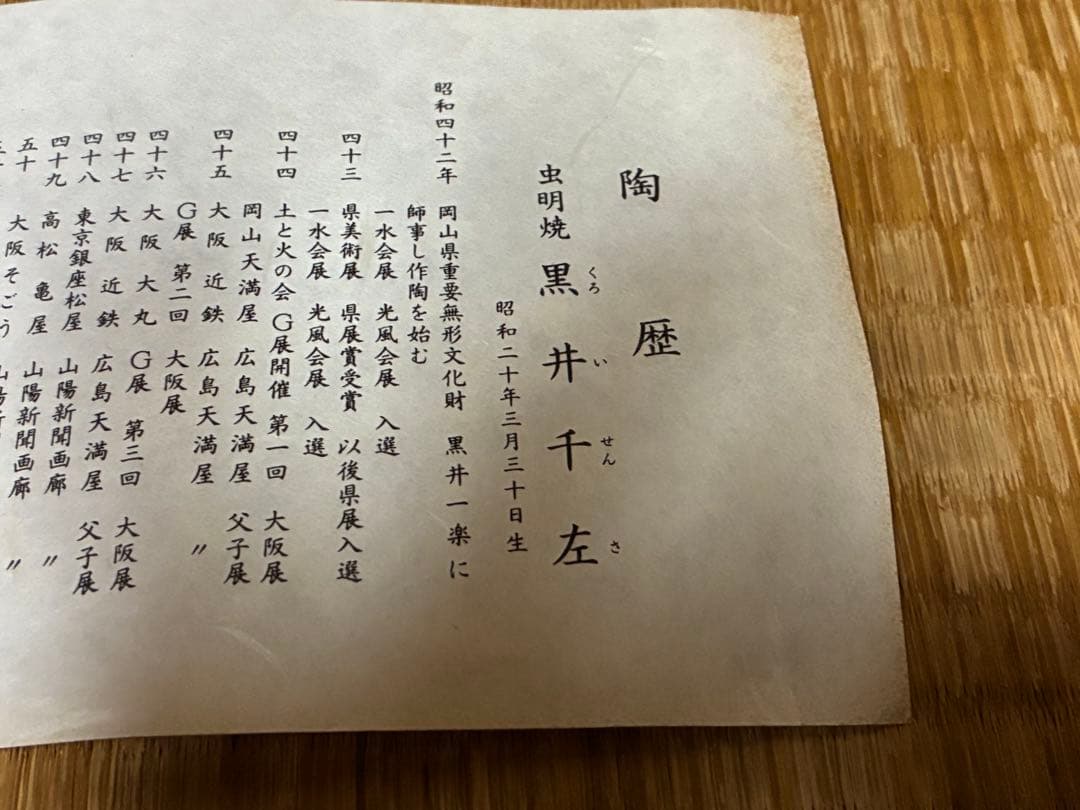 陶歴
虫明焼 黒井千左
くろ い せん さ
昭和二十年三月三十日生
昭和四十二年 岡山県重要無形文化財 黒井一楽に
師事し作陶を始む
一水会展 光風会展 入選
四十三 県美術展 県展賞受賞 以後県展入選
一水会展 光風会展 入選
四十四 土と火の会 G展開催 第一回 大阪展
岡山天満屋 広島天満屋 父子展
四十五 大阪近鉄 広島天満屋 〃
G展 第二回 大阪展
四十六 大阪大丸 G展 第三回 大阪展
四十七 大阪近鉄 広島天満屋 父子展
四十八 東京銀座松屋 山陽新聞画廊 〃
四十九 高松亀屋 山陽新聞画廊 〃
五十 大阪そごう